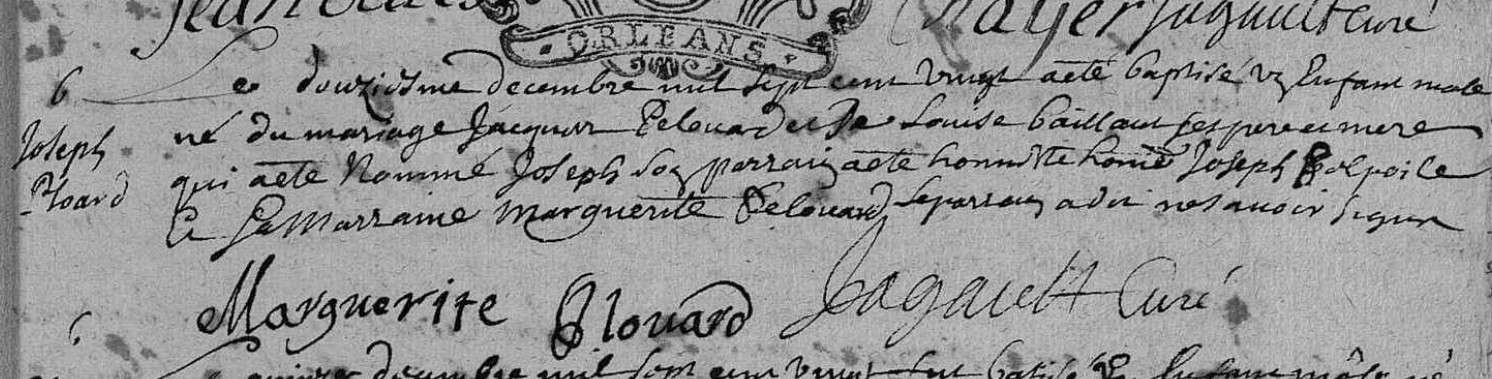 Jagault Curé
ORLEANS
6 Le douziesme decembre mil sept cent vingt aété baptisé un Enfant male
né du mariage Jacques Pelouard et De Louise baillaut ses pere et mere
Joseph
qui aété Nommé Joseph son parrain aeté honneste home Joseph
Plouard
Et Sa Marraine Marguerite Pelouard le parrain a dit ne savoir signer
Marguerite Plouard Jagault Curé
decembre mil sept cent vingt fut batisé Enfant mâle né